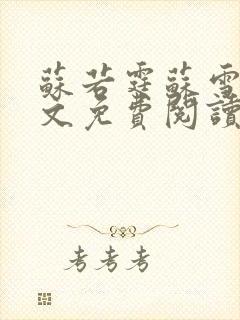 蘇若霆蘇雪
文免費閱讀
考考考